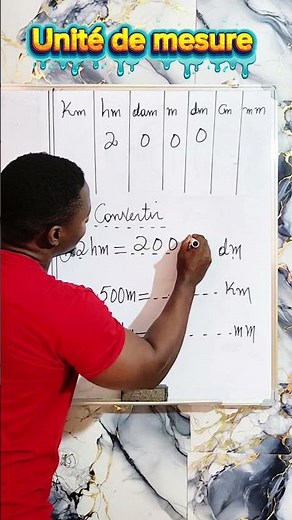 Unité de mesure
Km hm dam m dm Cm mm
2 0 0 0
Convertir
2hm = 200 dm
500m = Km
= mm